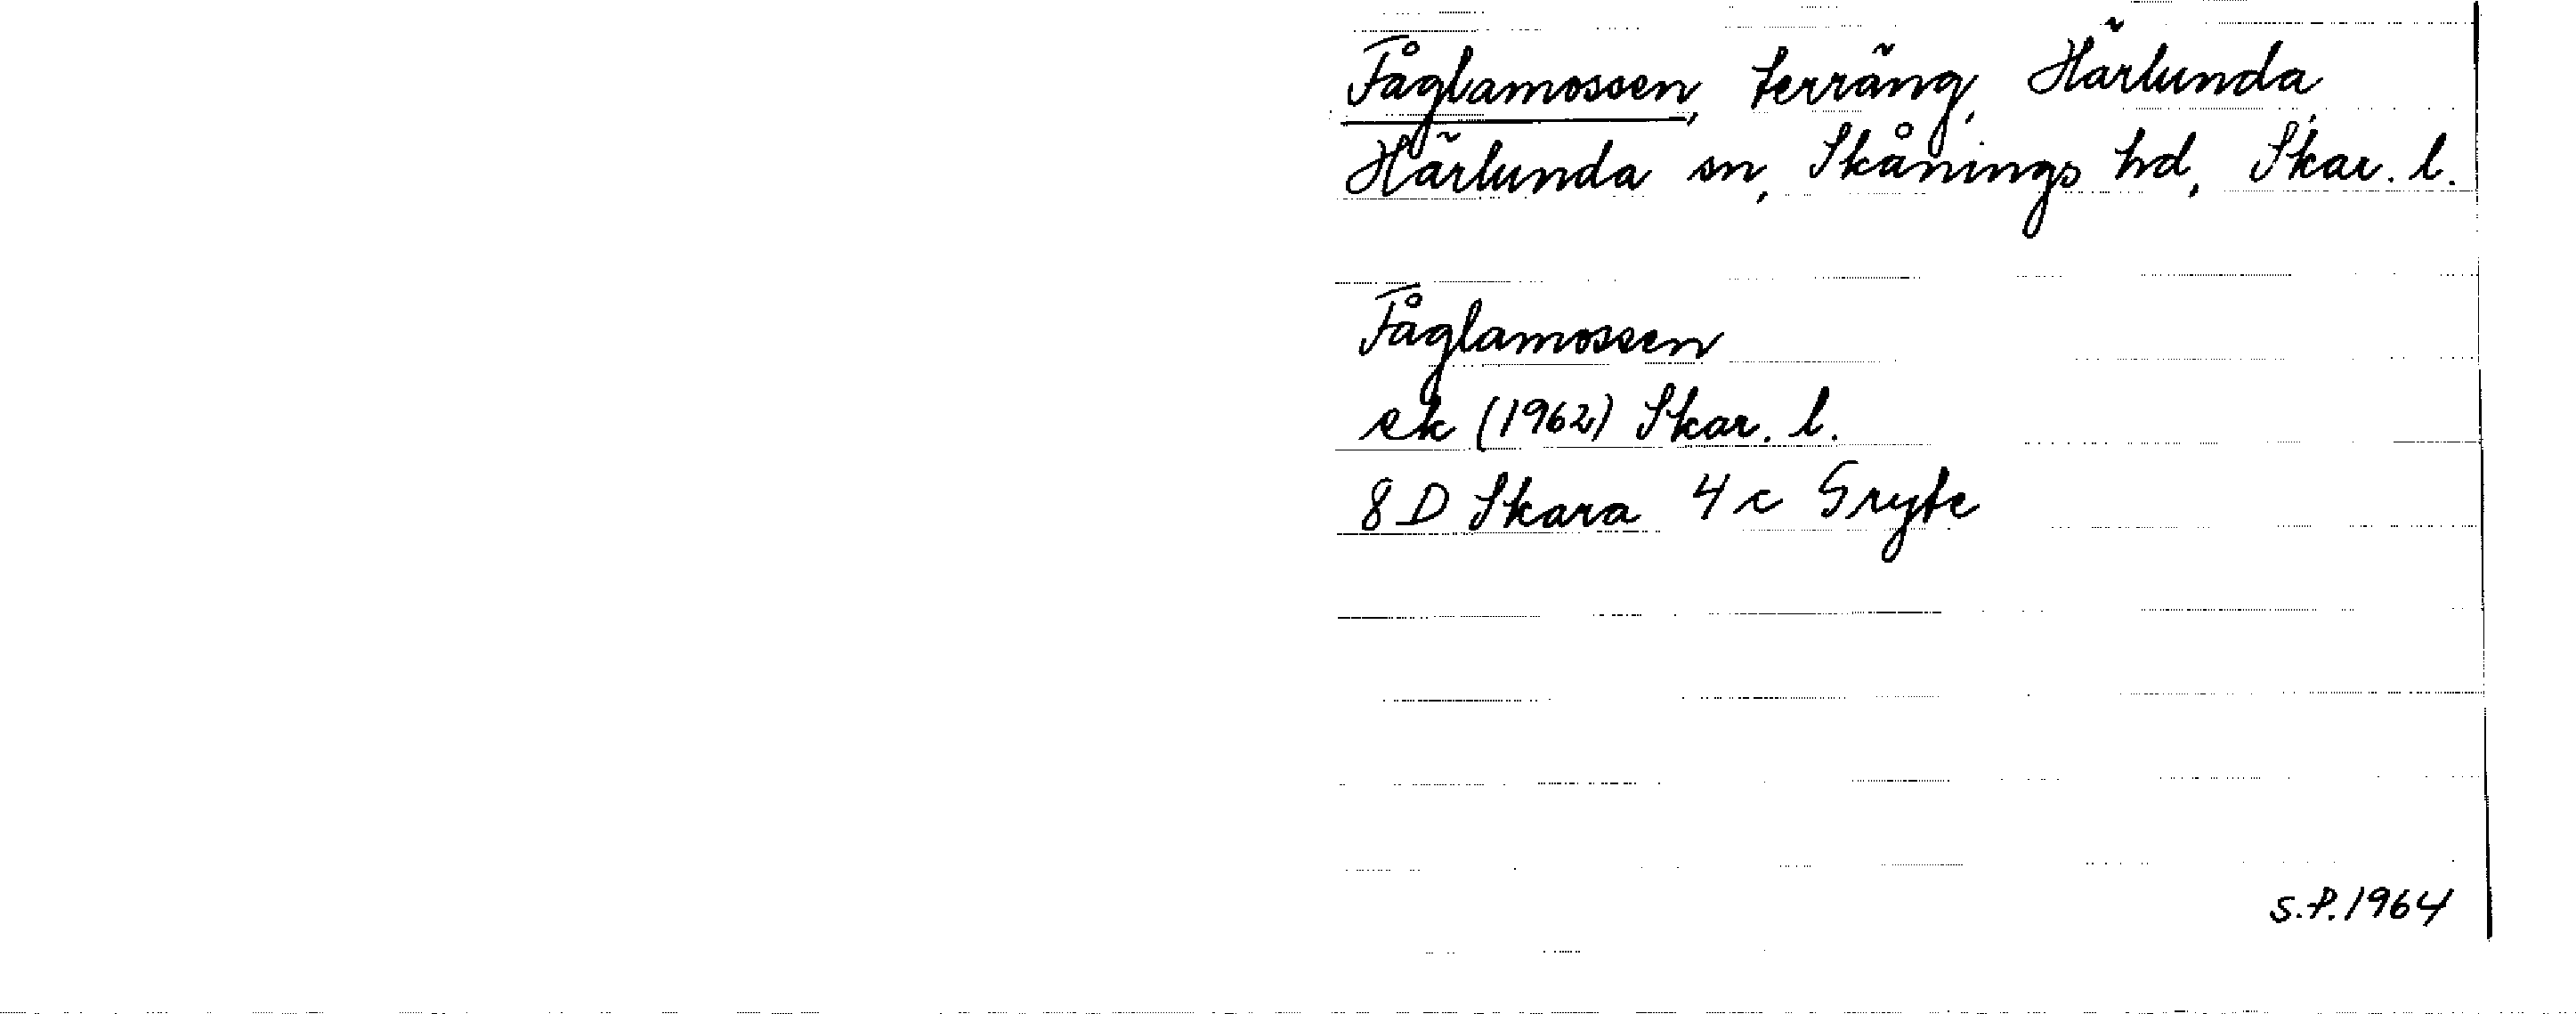 Fåglamossen, terräng, Härlunda,
Härlunda sn, Skånings hd, Skar. l.
Fåglamossen
ek (1962) Skar. l.
8 D Skara 4 c Gryte
S.P. 1964